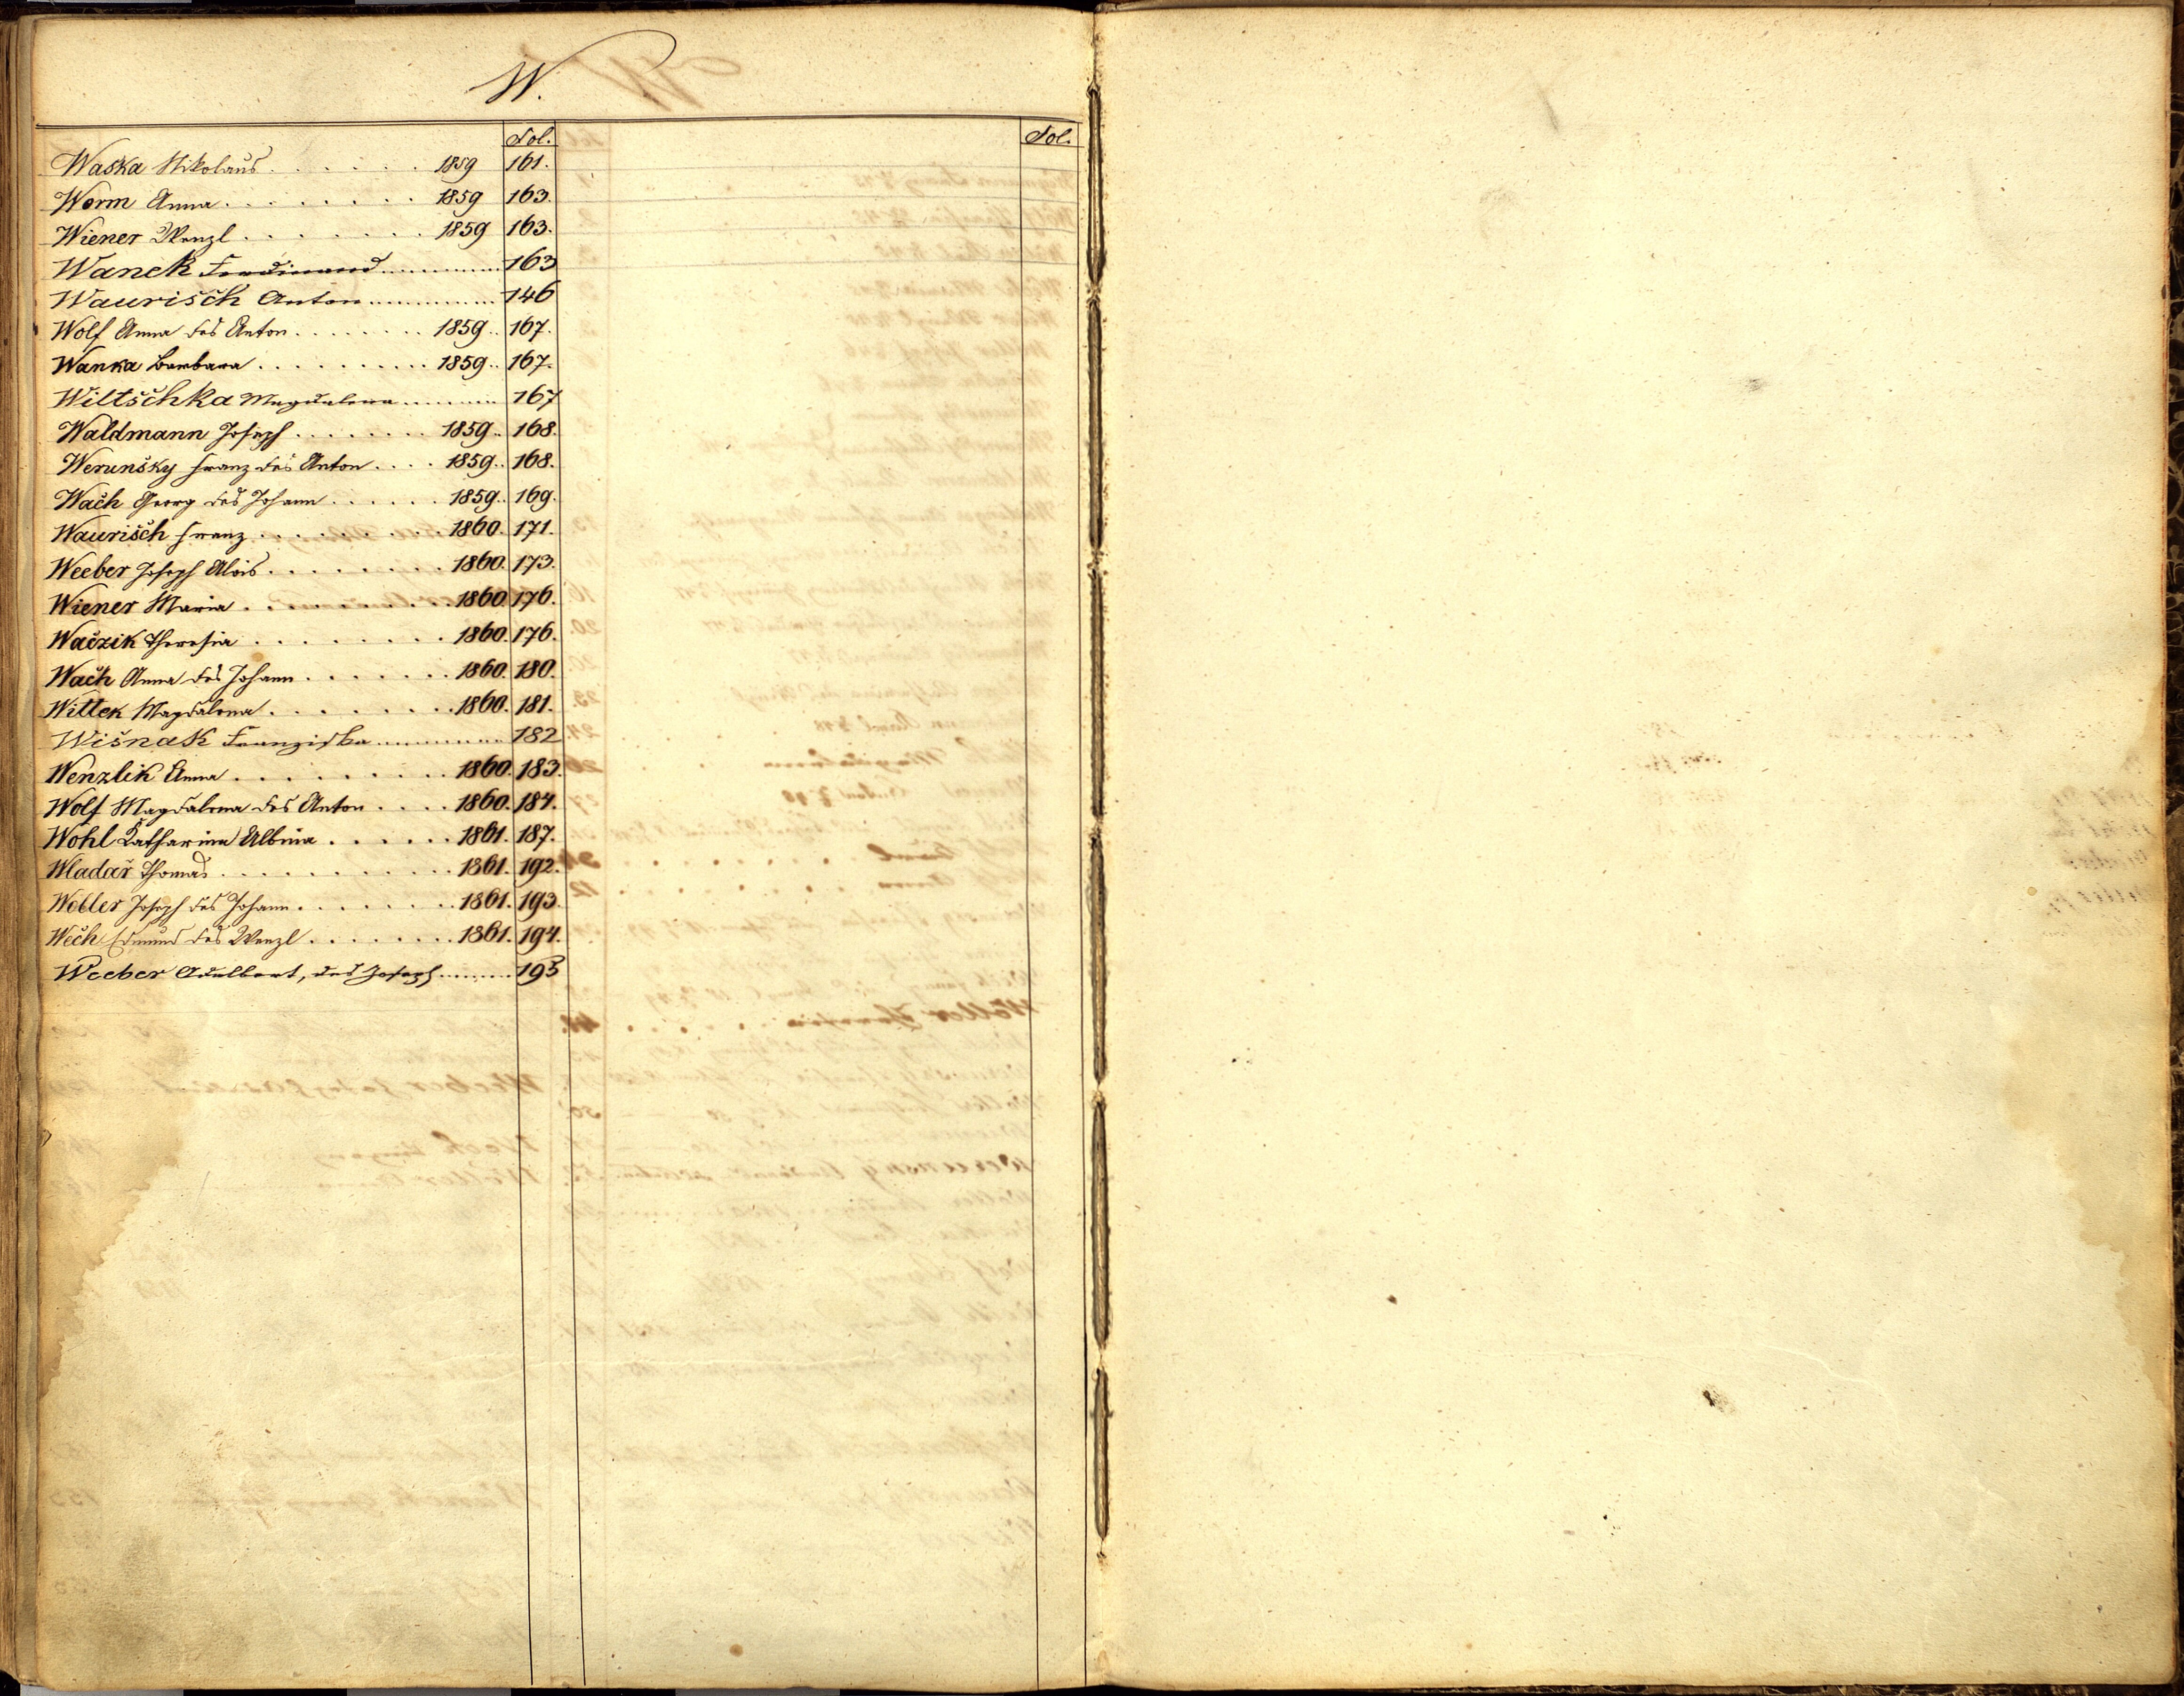 W.
Fol.
Fol.
Waska Nikolaus . . . . . . 1859 161.
Worm Anna . . . . . . . . 1859 163.
Wiener Wenzl . . . . . . . 1859 163.
Wanek Ferdinand ............ 163
Waurisch Anton ............ 146
Wolf Anna des Anton . . . . . . . . 1859.. 167.
Wanka Barbara . . . . . . . . . . 1859.. 167.
Wiltschka Magdalena ......... 167
Waldmann Joseph . . . . . . . . 1859.. 168.
Werunsky Franz des Anton . . . . 1859.. 168.
Wach Georg des Johann . . . . . . 1859.. 169.
Waurisch Franz . . . . . . . . . 1860. 171.
Weeber Joseph Alois . . . . . . . . 1860. 173.
Wiener Maria . . . . . . . . . . 1860. 176.
Waczik Theresia . . . . . . . . 1860. 176.
Wach Anna des Johann . . . . . . . 1860. 180.
Wittek Magdalena . . . . . . . . 1860. 181.
Wišnak Franziska ............ 182
Wenzlik Anna . . . . . . . . . 1860. 183.
Wolf Magdalena des Anton . . . . 1860. 184.
Wohl Katharina Albina . . . . . . 1861. 187.
Wladař Thomas . . . . . . . . . . . 1861. 192.
Joseph des Johann . . . . . . . 1861. 193.
Wech Edmund des Wenzl . . . . . . . 1861. 194.
Weeber Adalbert, des Joseph ......... 193